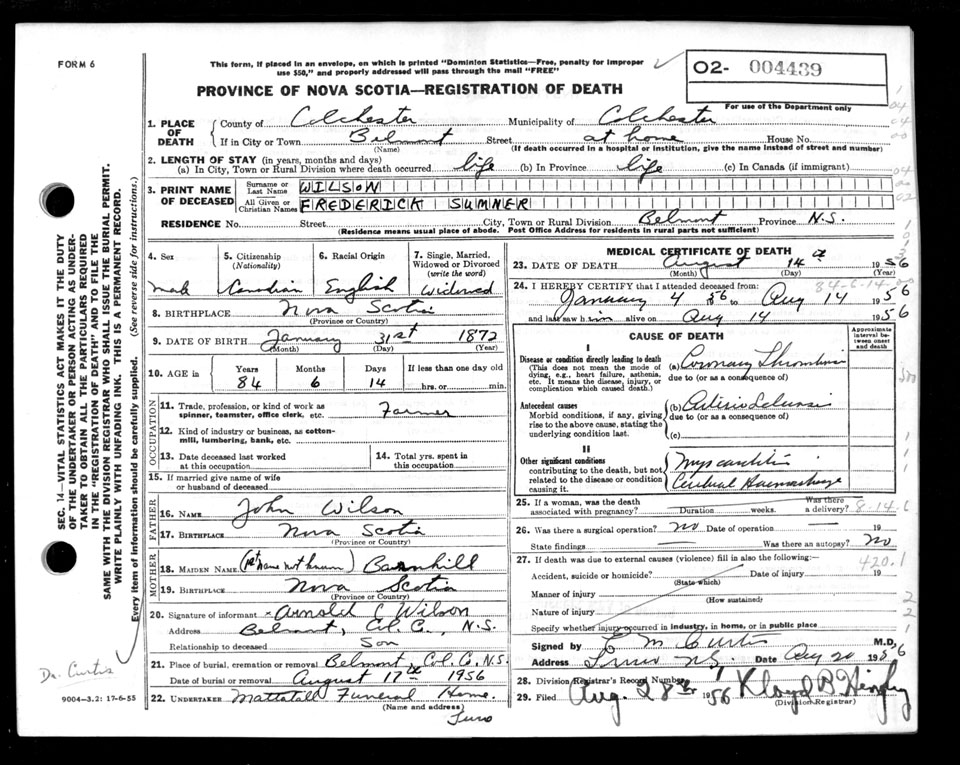 FORM 6
This form, if placed in an envelope, on which is printed "Dominion Statistics—Free, penalty for improper
use $50," and properly addressed will pass through the mail "FREE"
O2- 004439
For use of the Department only
PROVINCE OF NOVA SCOTIA—REGISTRATION OF DEATH
1. PLACE OF DEATH
County of Colchester Municipality of Colchester
If in City or Town Belmont Street at home House No.
(Name) (If death occurred in a hospital or institution, give the name instead of street and number)
2. LENGTH OF STAY (in years, months and days)
(a) In City, Town or Rural Division where death occurred life (b) In Province life (c) In Canada (if immigrant)
3. PRINT NAME OF DECEASED
Surname or Last Name WILSON
All Given or Christian Names FREDERICK SUMNER
RESIDENCE No. Street City, Town or Rural Division Belmont Province N.S.
(Residence means usual place of abode. Post Office Address for residents in rural parts not sufficient)
4. Sex 5. Citizenship (Nationality) 6. Racial Origin 7. Single, Married, Widowed or Divorced (write the word)
Canadian English Widowed
8. BIRTHPLACE Nova Scotia
(Province or Country)
9. DATE OF BIRTH January 31st 1872
(Month) (Day) (Year)
10. AGE in Years Months Days If less than one day old
84 6 14 hrs. or min.
OCCUPATION
11. Trade, profession, or kind of work as spinner, teamster, office clerk, etc. Farmer
12. Kind of industry or business, as cotton-mill, lumbering, bank, etc.
13. Date deceased last worked at this occupation
14. Total yrs. spent in this occupation
15. If married give name of wife or husband of deceased
FATHER
16. NAME John Wilson
17. BIRTHPLACE Nova Scotia
(Province or Country)
MOTHER
18. MAIDEN NAME (1st name not known) Barnhill
19. BIRTHPLACE Nova Scotia
(Province or Country)
20. Signature of informant x Arnold C Wilson
Address Belmont, Col. C., N.S.
Relationship to deceased Son
21. Place of burial, cremation or removal Belmont, Col. C. N.S.
Date of burial or removal August 17th 1956
22. UNDERTAKER Mattatall Funeral Home.
(Name and address) Truro
MEDICAL CERTIFICATE OF DEATH
23. DATE OF DEATH August 14 1956
(Month) (Day) (Year)
84-6-14
24. I HEREBY CERTIFY that I attended deceased from:
January 4 56 to Aug 14 1956
and last saw him alive on Aug 14 1956
CAUSE OF DEATH
Approximate interval between onset and death
I
Disease or condition directly leading to death (a) Coronary Thrombosis
(This does not mean the mode of dying, e.g., heart failure, asthenia, etc. It means the disease, injury, or complication which caused death.) due to (or as a consequence of)
Antecedent causes (b) Arterio Sclerosis
Morbid conditions, if any, giving rise to the above cause, stating the underlying condition last. due to (or as a consequence of)
(c)
II
Other significant conditions contributing to the death, but not related to the disease or condition causing it.
Myocarditis
Cerebral Haemorrhage
25. If a woman, was the death associated with pregnancy? Duration weeks. Was there a delivery?
8-14-6
26. Was there a surgical operation? no Date of operation 19
State findings Was there an autopsy? no
27. If death was due to external causes (violence) fill in also the following:—
420.1
Accident, suicide or homicide? Date of injury 19
(State which)
Manner of injury
(How sustained)
Nature of injury
Specify whether injury occurred in industry, in home, or in public place
Signed by E M Curtis M.D.
Address Truro N.S. Date Aug 20 1956
28. Division Registrar's Record Number
29. Filed Aug. 28th 1956
(Division Registrar)
SEC. 14—VITAL STATISTICS ACT MAKES IT THE DUTY
OF THE UNDERTAKER OR PERSON ACTING AS UNDER-
TAKER TO OBTAIN ALL THE PARTICULARS REQUIRED
IN THE "REGISTRATION OF DEATH" AND TO FILE THE
SAME WITH THE DIVISION REGISTRAR WHO SHALL ISSUE THE BURIAL PERMIT.
WRITE PLAINLY WITH UNFADING INK. THIS IS A PERMANENT RECORD.
Every item of information should be carefully supplied. (See reverse side for instructions.)
Dr. Curtis
9004—3.2: 17-6-55